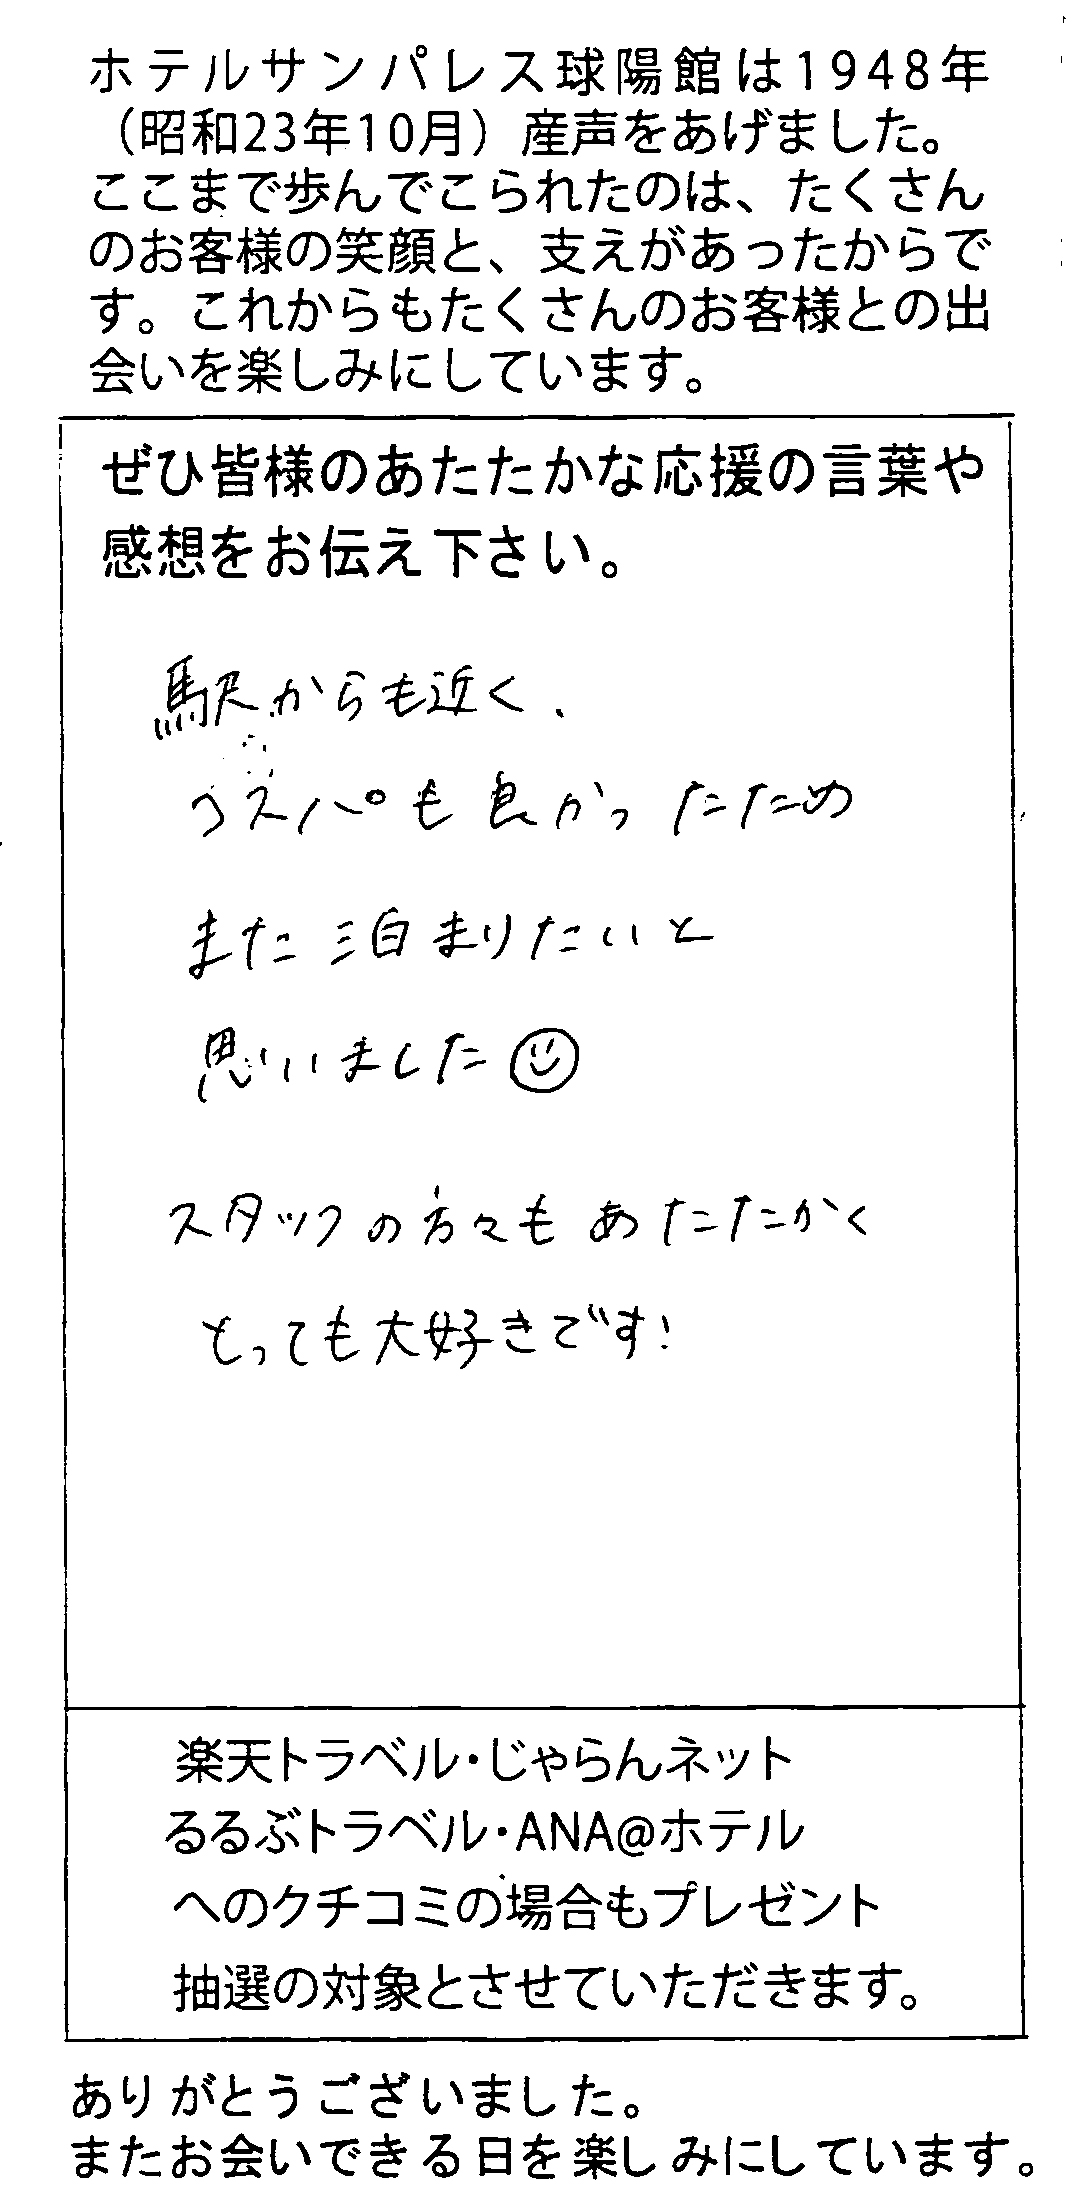 ホテルサンパレス球陽館は1948年
（昭和23年10月）産声をあげました。
ここまで歩んでこられたのは、たくさん
のお客様の笑顔と、支えがあったからで
す。これからもたくさんのお客様との出
会いを楽しみにしています。
ぜひ皆様のあたたかな応援の言葉や
感想をお伝え下さい。
駅からも近く、
コスパも良かったため
また泊まりたいと
思いました
スタッフの方々もあたたかく
とっても大好きです!
楽天トラベル・じゃらんネット
るるぶトラベル・ANA@ホテル
へのクチコミの場合もプレゼント
抽選の対象とさせていただきます。
ありがとうございました。
またお会いできる日を楽しみにしています。